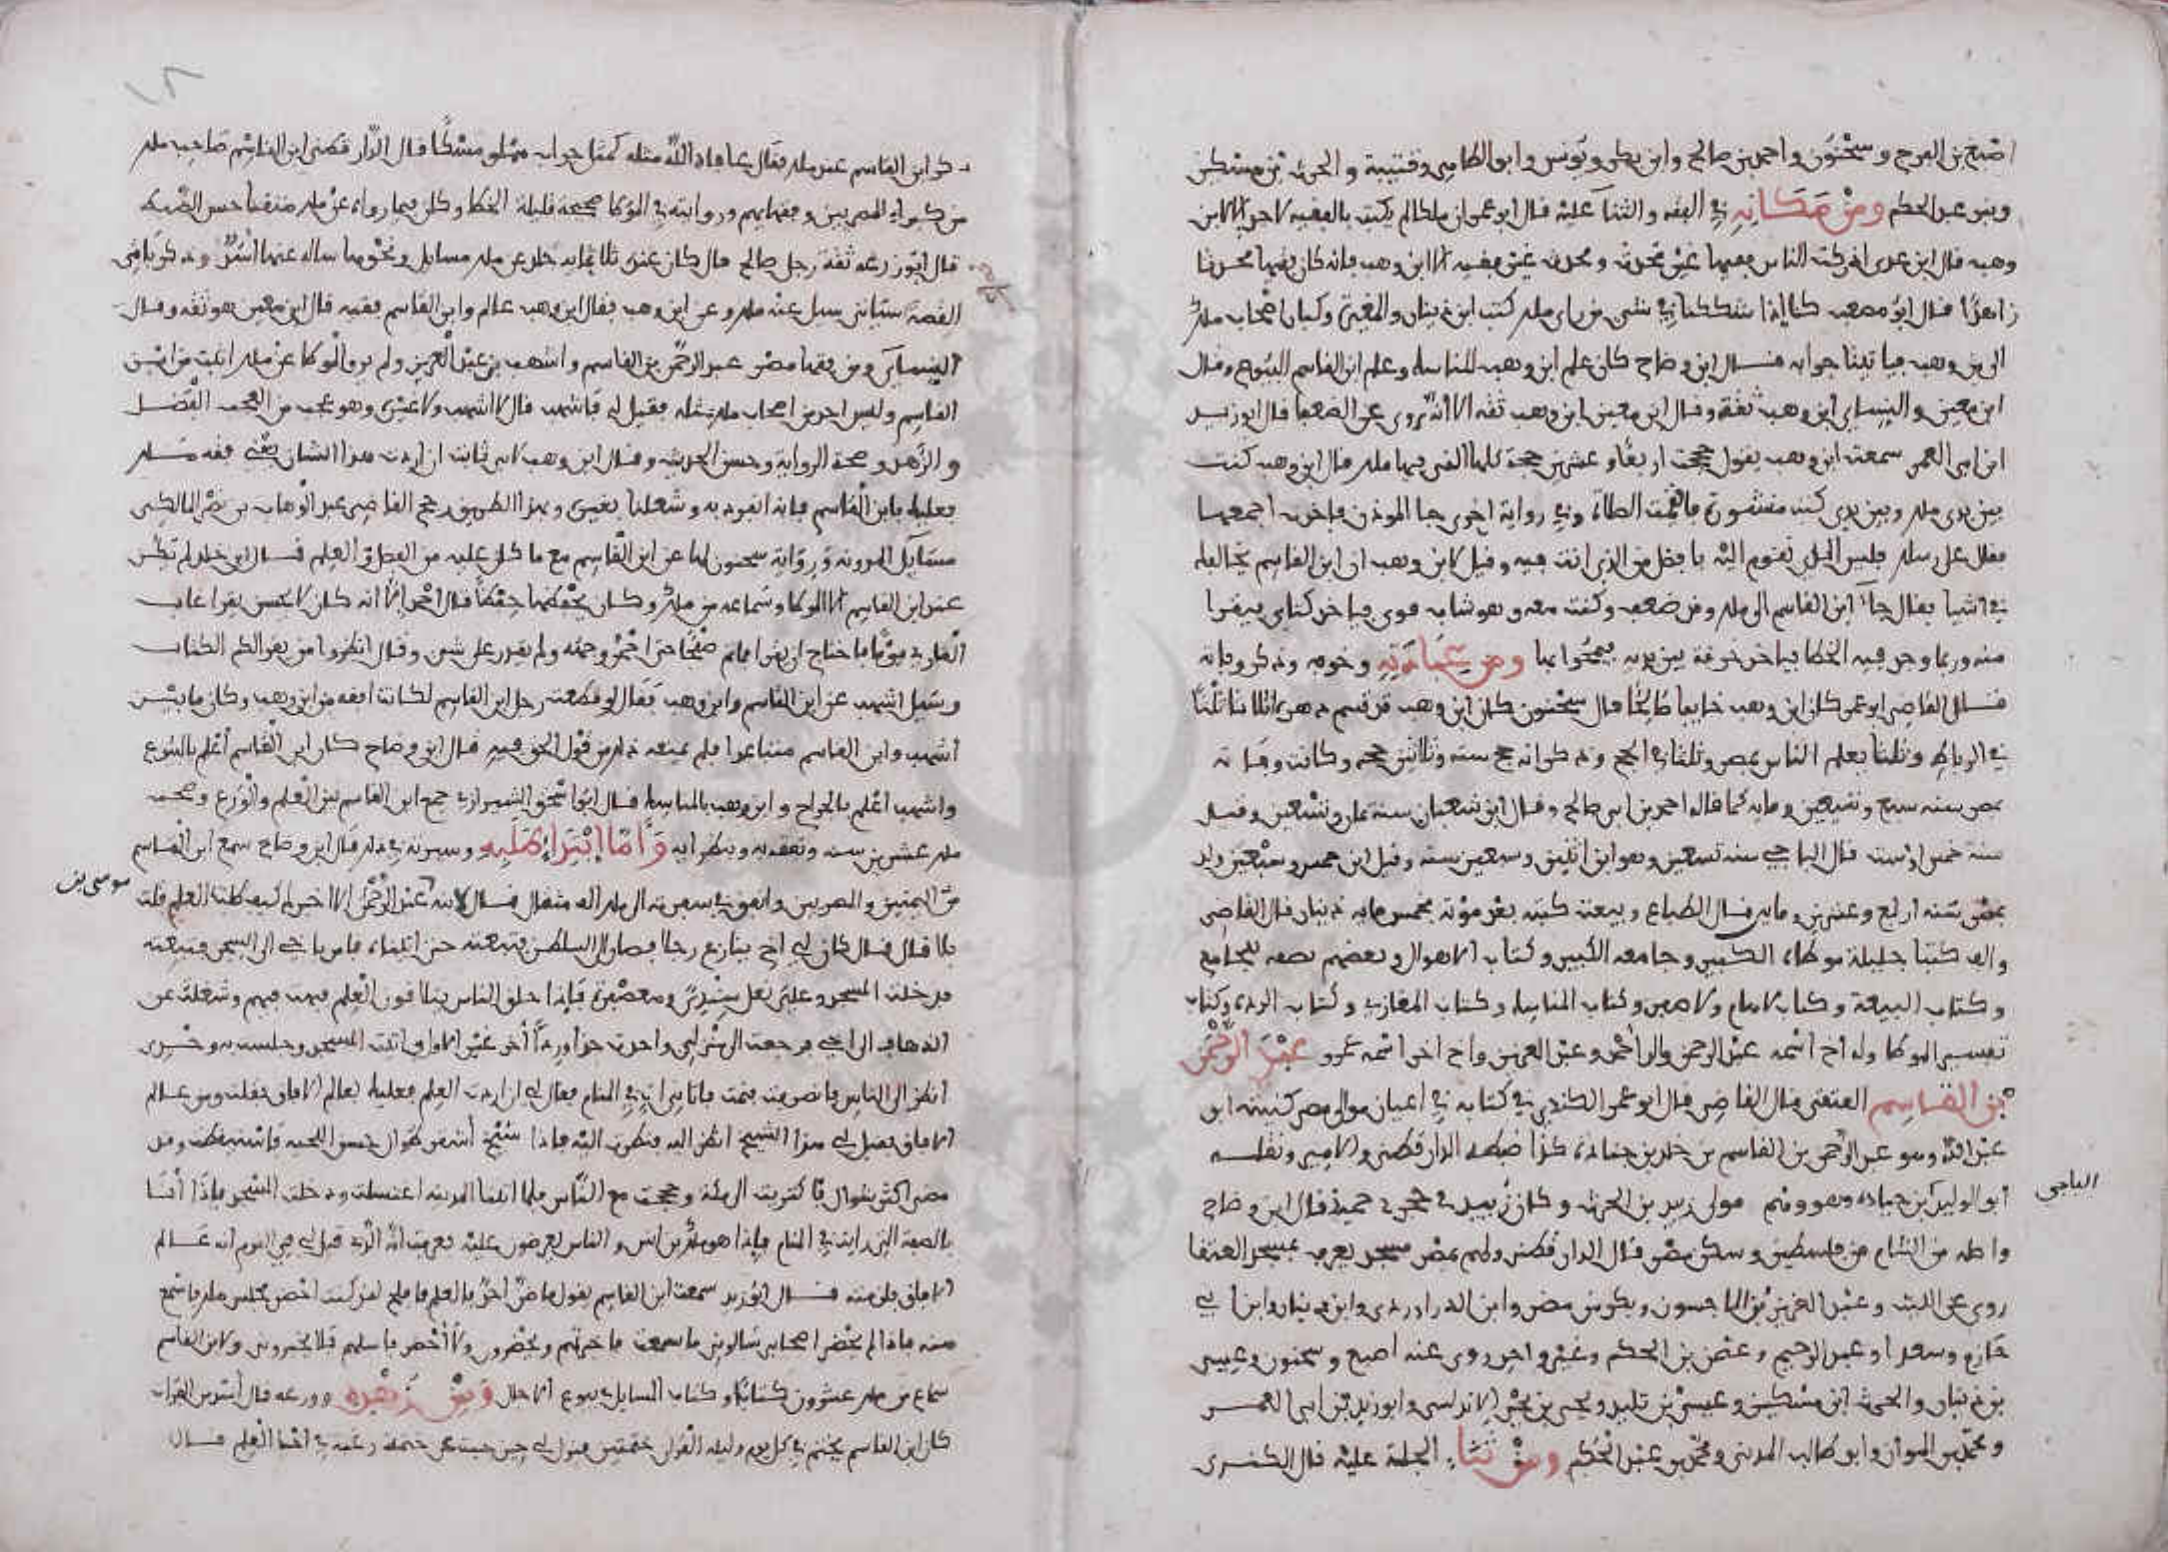 اصبغ بن الفرج وسحنون واحمد بن صالح وابن بكير ويونس وابو الطاهر وقتيبة والحرث بن مسكين
وبنو عبد الحكم ومن مكانه في الفقه والثنا عليه قال ابو عمر ان ملكا لم يكتب بالفقيه لاحد الا لابن
وهب قال ابن عدى ادركت الناس فقيها غير محدث ومحدث غير فقيه الا ابن وهب فانه كان فقيها محدثا
زاهدا قال ابو مصعب كنا اذا شككنا في شي من راى ملك كتب ابن دينار والمغيرة وكبار اصحاب ملك
الى بن وهب فياتينا جوابه قال ابن وضاح كان علم ابن وهب المناسك وعلم ابن القاسم البيوع وقال
ابن معين والنساى ابن وهب ثقة وقال ابن معين ابن وهب ثقه الا انه يروى عن الضعفا قال ابو زيد
ابن ابى الغمر سمعت ابن وهب يقول حججت اربعا وعشرين حجة كلها القى فيها ملك قال ابن وهب كنت
بين يدى ملك وبين يدى كتب منشورة فاقيمت الصلاة وفي رواية اخرى جا الموذن فاخذت اجمعها
فقال على رسلك فليس الذى تقوم اليه بافضل من الذى انت فيه وقيل لابن وهب ان ابن القاسم يخالفك
في اشيا فقال جا ابن القاسم الى ملك وقد ضعف وكنت معه وهو شاب قوى فياخذ كتابى فيقرا
منه وربما وجد فيه الخطا فياخذ خرقة بين يديه فيمحوا بها ومن وخوفه وذكر وفاته
قال القاضى ابو عمر كان ابن وهب صالحا قال سحنون كان ابن وهب قد قسم دهره اثلاثا ثلثا
في الرباط وثلثا يعلم الناس بمصر وثلثا في الحج وذكر انه حج ستة وثلاثين حجه وكانت وفاته
بمصر سنه سبع وتسعين ومايه كما قاله احمد بن ابى صالح وقال ابن شعبان سنة ثمان وتسعين وقيل
سنة خمس او ست قال الباجى سنه تسعين وهو ابن اثنين وسبعين سنه وقيل ابن خمس وسبعين ولد
بمصر سنه اربع وعشرين ومايه قال الطباع وبيعت كتبه بعد موته بخمس مايه دينار قال القاضى
والف كتبا جليلة موطاه الكبير وجامعه الكبير وكتاب الاهوال وبعضهم يضفه للجامع
وكتاب البيعة وكتاب لاهام ولا صفر وكتاب المناسك وكتاب المغازى وكتاب الردة وكتاب
تفسير الموطا وله اخ اسمه عبد الرحمن وعبد العزيز واخ اخر اسمه عمرو عبد الرحمن
بن القاسم العتقى قال القاضى قال ابو عمر الكندى في كتابه في اعيان موالى مصر كنيته ابو
عبد الله وهو عبد الرحمن بن القاسم بن خالد بن جنادة كذا ضبطه الدارقطنى والامير ونقله
ابو الوليد ابن جنادة وهو وهم مولى زبيد بن الحرث وكان زبيد في حجر حمير قال ابن وضاح
الباجى
واصله من الشام من فلسطين وسكن مصر قال الدارقطنى ولهم بمصر مسجد يعرف بمسجد العتقا
روى عن الليث وعبد العزيز بن الماجشون وبكر بن مضر وابن الدراوردى وابن دينار وابن ابى
حازم وسعد او عبد الرحيم وعثمن بن الحكم وغير واحد روى عنه اصبغ وسحنون وعيسى
بن دينار والحرث ابن مسكين وعيسى بن تليد ويحيى بن يحيى الاندلسى وابو زيد بن ابى الغمر
ومحمد بن المواز وابو طالب المدنى ومحمد بن عبد الحكم ومن ثناء الجلة عليه قال الكندى
ذكر ابن القاسم عند ملك فقال عافاه الله مثله كمثل جراب مملو مسكا قال الدارقطنى ابن القاسم صاحب ملك
من كبراء المصريين وفقهايهم وروايته في الموطا صحيحة قليلة الخطا وكان فيما رواه عن ملك متقنا حسن الضبط
قال ابو زرعه ثقة رجل صالح قال كان عنده ثلاثمايه جلد عن ملك مسايل ونحوها ساله عنها اسد وذكر باقى
القصة سياتى سيل عنه ملك وعن ابن وهب فقال ابن وهب عالم وابن القاسم فقيه قال ابن معين هو ثقه وقال
النسايى ومن فقها مصر عبد الرحمن بن القاسم واشهب بن عبد العزيز ولم يرو الموطا عن ملك اثبت من ابن
القاسم وليس احد من اصحاب ملك مثله فقيل له فاشهب قال لا اشهب ولا غيره وهو عجب من العجب الفضل
والزهد وصحة الرواية وحسن الحديث وقال ابن وهب لابى ثابت ان اردت هذا الشان يعنى فقه ملك
فعليك بابن القاسم فانه انفرد به وشغلنا بغيره وبهذا الطريق رجح القاضى عبد الوهاب بن نصر المالكى
مسايل المدونه ورواية سحنون لها عن ابن القاسم مع ما كان عليه من الفضل والعلم قال ابن خالد لم تكن
عند ابن القاسم الا الموطا وسماعه من ملك وكان يحفظهما حفظا قال احمد الا انه كان لا يحسن يقرا عاب
القارى يوما فاحتاج ان يقرا فاقام صفحا حتى احمر وجهه ولم يقدر على شى وقال انظروا من يقرا لكم الكتاب
وسيل اشهب عن ابن القاسم وابن وهب فقال لو قطعت رجل ابن القاسم لكانت افقه من ابن وهب وكان ما بين
اشهب وابن القاسم متباعدا فلم يمنعه ذلك من قول الحق فيه قال ابن وضاح كان ابن القاسم اعلم بالبيوع
واشهب اعلم بالجراح وابن وهب بالمناسك قال ابو اسحق الشيرازى جمع ابن القاسم بين العلم والورع وصحب
ملك عشرين سنه وتفقه به وبنظرايه واما ابتدا طلبه وسيرته في ذلك قال ابن وضاح سمع ابن القاسم
من المصريين وانفق في سفرته الى ملك الف مثقال قال لابنه عبد الرحمن الا اخبرك كيف طلبت العلم قلت
موسى بن
بلا قال قال كان لى اخ ينازع رجلا فصار الى السلطن فتبعته حتى فامر باخى الى السجن فتبعته
فدخلت المسجد وعلى نعل سندى ومعصفرة فاذا حلق الناس يتلاقون العلم فبهت فيهم وشغلت عن
الذهاب الى اخى فرجعت الى منزلى واخذت حذا ورداء اخر غير الاول واتيت المسجد وجلست به وحدى
انظر الى الناس فانصرفت فنمت فاتانى ات في المنام فقال لى ان اردت العلم فعليك بعالم الافاق فقلت ومن عالم
الافاق فقيل لى هذا الشيخ انظر اليه فنظرت اليه فاذا شيخ اشقر طوال حسن اللحيه فاستيقظت وقد
مضى اكثر شوال فاكتريت الى مكة وحججت مع الناس فلما اتينا المدينه اغتسلت ودخلت المسجد فاذا انا
بالصفة التى رايت في المنام فاذا هو ملك بن انس والناس يعرضون عليه فعرفت انه الذى قيل لى في النوم انه عالم
الافاق فلزمته قال ابو زيد سمعت ابن القاسم يقول ما ضر احد بالعلم فافلح لقد كنت احضر مجلس ملك فاسمع
منه فاذا لم يحضر اصحابى سالونى ما سمعت فاخبرتهم ويحضرون ولا احضر فاسلهم فلا يخبرونى ولابن القاسم
سماع من ملك عشرون كتابا وكتاب المسايل في بيوع الاجال ومن زهده وورعه قال اسد بن الفرات
كان ابن القاسم يختم في كل يوم وليله القران ختمتين فنزل لى حين جيت عن ختمة رغبه في احيا العلم قال